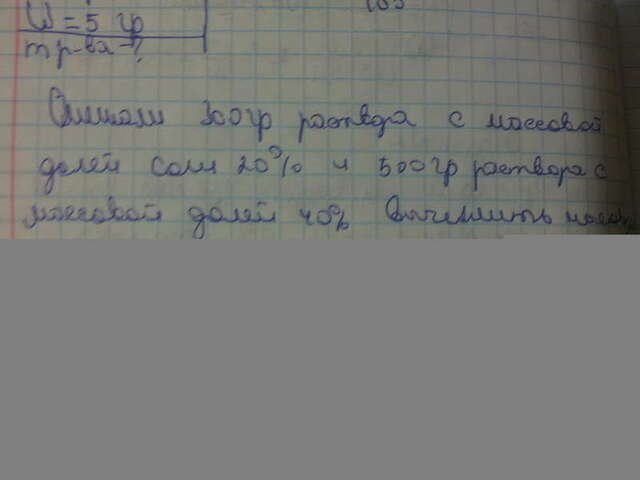 W = 5 гр
m р-ва - ?
Смешали 300 гр раствора с массовой
долей соли 20% и 500 гр раствора с
массовой долей 40% Вычислить массу